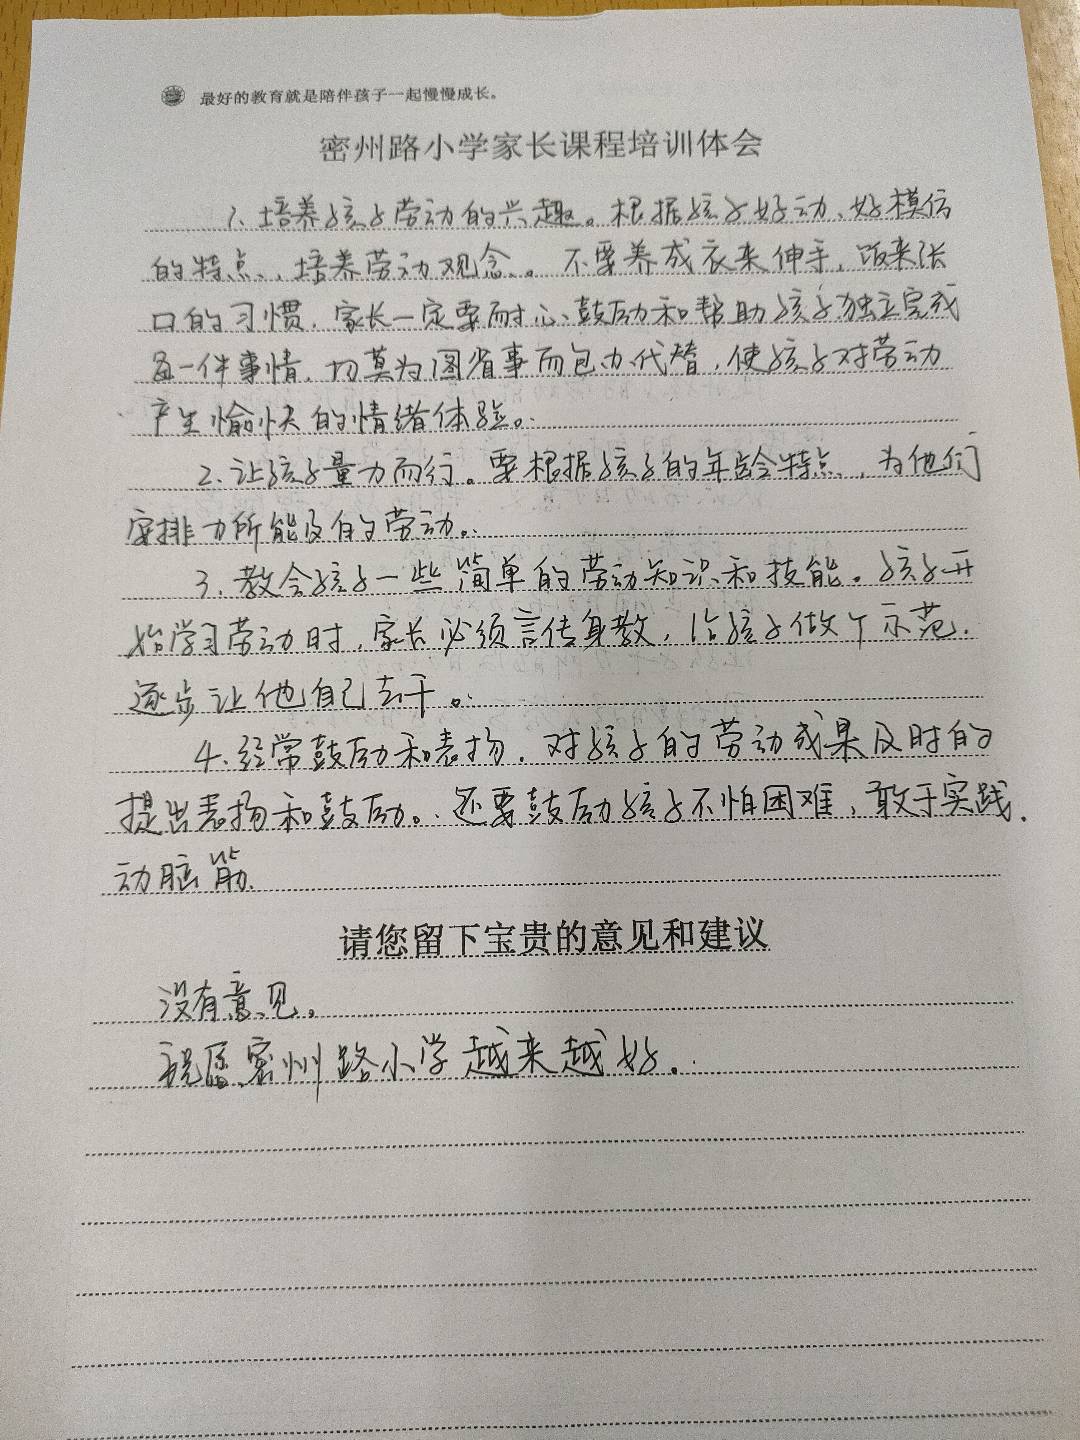 最好的教育就是陪伴孩子一起慢慢成长。
密州路小学家长课程培训体会
1、培养孩子劳动的兴趣。根据孩子好动、好模仿
的特点、培养劳动观念。不要养成衣来伸手,饭来张
口的习惯,家长一定要耐心鼓励和帮助孩子独立完成
每一件事情,切莫为图省事而包办代替,使孩子对劳动
产生愉快的情绪体验。
2、让孩子量力而行。要根据孩子的年龄特点,为他们
安排力所能及的劳动。
3、教会孩子一些简单的劳动知识和技能。孩子开
始学习劳动时,家长必须言传身教,给孩子做个示范,
逐步让他自己去干。
4、经常鼓励和表扬,对孩子的劳动成果及时的
提出表扬和鼓励。还要鼓励孩子不怕困难,敢于实践,
动脑筋.
请您留下宝贵的意见和建议
没有意见。
祝愿密州路小学越来越好。